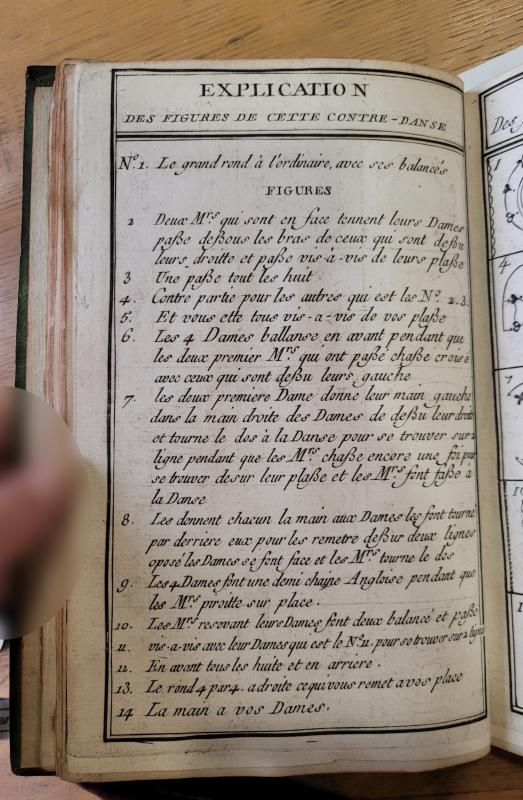 EXPLICATION
DES FIGURES DE CETTE CONTRE-DANSE
Nº.1. Le grand rond à l'ordinaire, avec ses balancés
FIGURES
2 Deux Mrs qui sont en face tennent leurs Dames
paße deßous les bras de ceux qui sont deßu
leurs droitte et paße vis-à-vis de leurs plaße
3 Une paße tout les huit
4. Contre partie pour les autres qui est les Nº. 2.3.
5. Et vous ette tous vis-a-vis de vos plaße
6. Les 4 Dames ballanse en avant pendant que
les deux premier Mrs qui ont paßé chaße croisé
avec ceux qui sont deßu leurs gauche
7. les deux premiere Dame donne leur main gauche
dans la main droite des Dames de deßu leur droite
et tourne le dos à la Danse pour se trouver sur 2
ligne pendant que les Mrs. chaße encore une foi pour
se trouver desur leur plaße et les Mrs. font faße à
la Danse
8. Les donnent chacun la main aux Dames les font tourné
par derriere eux pour les remetre deßur deux lignes
oposé les Dames se font face et les Mrs tourne le dos
9. Les 4 Dames font une demi chaine Angloise pendant que
les Mrs. piroitte sur place.
10. Les Mrs resevant leurs Dames font deux balancé et paße
11. vis-a-vis avec leur Dames qui est le Nº 11. pour se trouver sur 2 lignes
12. En avant tous les huite et en arriere.
13. Le rond 4 par 4. a droite ce qui vous remet a vos place
14 La main a vos Dames.
Des
1
4
7
10
1